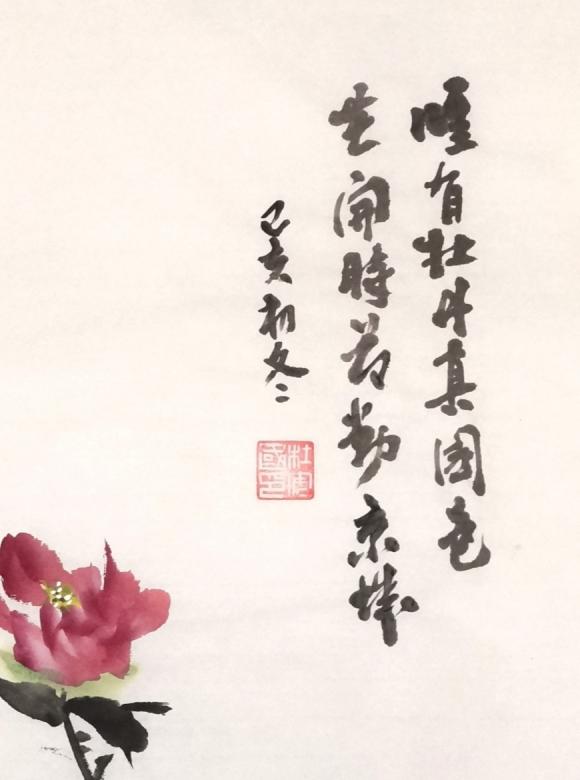 唯有牡丹真國色
花開時節動京城
己亥初冬
杜國印